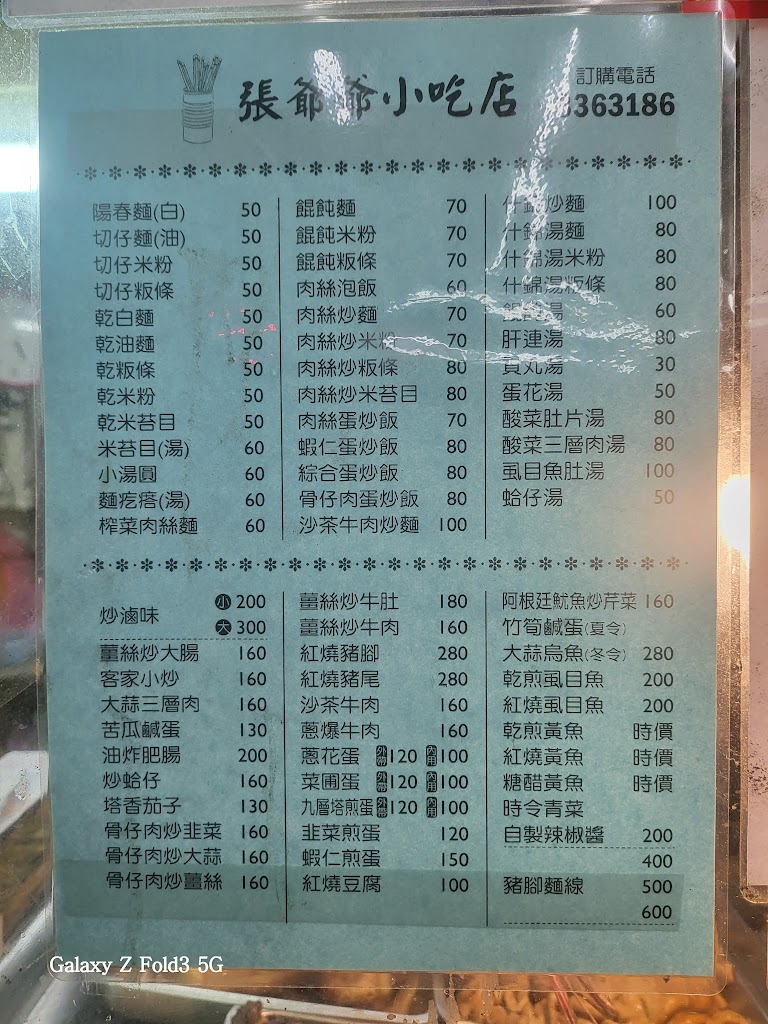 張爺爺小吃店
訂購電話
3363186
陽春麵(白) 50
切仔麵(油) 50
切仔米粉 50
切仔粄條 50
乾白麵 50
乾油麵 50
乾粄條 50
乾米粉 50
乾米苔目 50
米苔目(湯) 60
小湯圓 60
麵疙瘩(湯) 60
榨菜肉絲麵 60
餛飩麵 70
餛飩米粉 70
餛飩粄條 70
肉絲泡飯 60
肉絲炒麵 70
肉絲炒米粉 70
肉絲炒粄條 80
肉絲炒米苔目 80
肉絲蛋炒飯 70
蝦仁蛋炒飯 80
綜合蛋炒飯 80
骨仔肉蛋炒飯 80
沙茶牛肉炒麵 100
什錦炒麵 100
什錦湯麵 80
什錦湯米粉 80
什錦湯粄條 80
餛飩湯 60
肝連湯 80
貢丸湯 30
蛋花湯 50
酸菜肚片湯 80
酸菜三層肉湯 80
虱目魚肚湯 100
蛤仔湯 50
炒滷味 小 200
大 300
薑絲炒大腸 160
客家小炒 160
大蒜三層肉 160
苦瓜鹹蛋 130
油炸肥腸 200
炒蛤仔 160
塔香茄子 130
骨仔肉炒韭菜 160
骨仔肉炒大蒜 160
骨仔肉炒薑絲 160
薑絲炒牛肚 180
薑絲炒牛肉 160
紅燒豬腳 280
紅燒豬尾 280
沙茶牛肉 160
蔥爆牛肉 160
蔥花蛋 外帶120 內用100
菜圃蛋 外帶120 內用100
九層塔煎蛋 外帶120 內用100
韭菜煎蛋 120
蝦仁煎蛋 150
紅燒豆腐 100
阿根廷魷魚炒芹菜 160
竹筍鹹蛋(夏令)
大蒜烏魚(冬令) 280
乾煎虱目魚 200
紅燒虱目魚 200
乾煎黃魚 時價
紅燒黃魚 時價
糖醋黃魚 時價
時令青菜
自製辣椒醬 200
400
豬腳麵線 500
600
Galaxy Z Fold3 5G